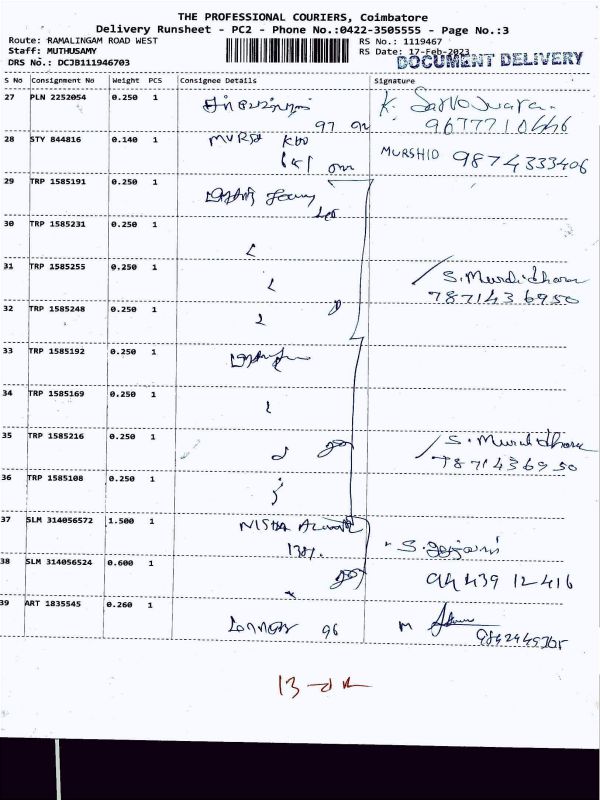 THE PROFESSIONAL COURIERS, Coimbatore
Delivery Runsheet - PC2 - Phone No.:0422-3505555 - Page No.:3
Route: RAMALINGAM ROAD WEST
Staff: MUTHUSAMY
DRS No.: DCJB111946703
RS No.: 1119467
RS Date: 17-Feb-2023
DOCUMENT DELIVERY
S No Consignment No Weight PCS Consignee Details Signature
27 PLN 2252054 0.250 1
97
9677710446
28 STY 844816 0.140 1
MURSHID 9874333406
29 TRP 1585191 0.250 1
30 TRP 1585231 0.250 1
31 TRP 1585255 0.250 1
S. Muralidharan
7871436950
32 TRP 1585248 0.250 1
33 TRP 1585192 0.250 1
34 TRP 1585169 0.250 1
35 TRP 1585216 0.250 1
S. Muralidharan
7871436950
36 TRP 1585108 0.250 1
37 SLM 314056572 1.500 1 NISHA
38 SLM 314056524 0.600 1
94439 12416
39 ART 1835545 0.260 1
96 M
13